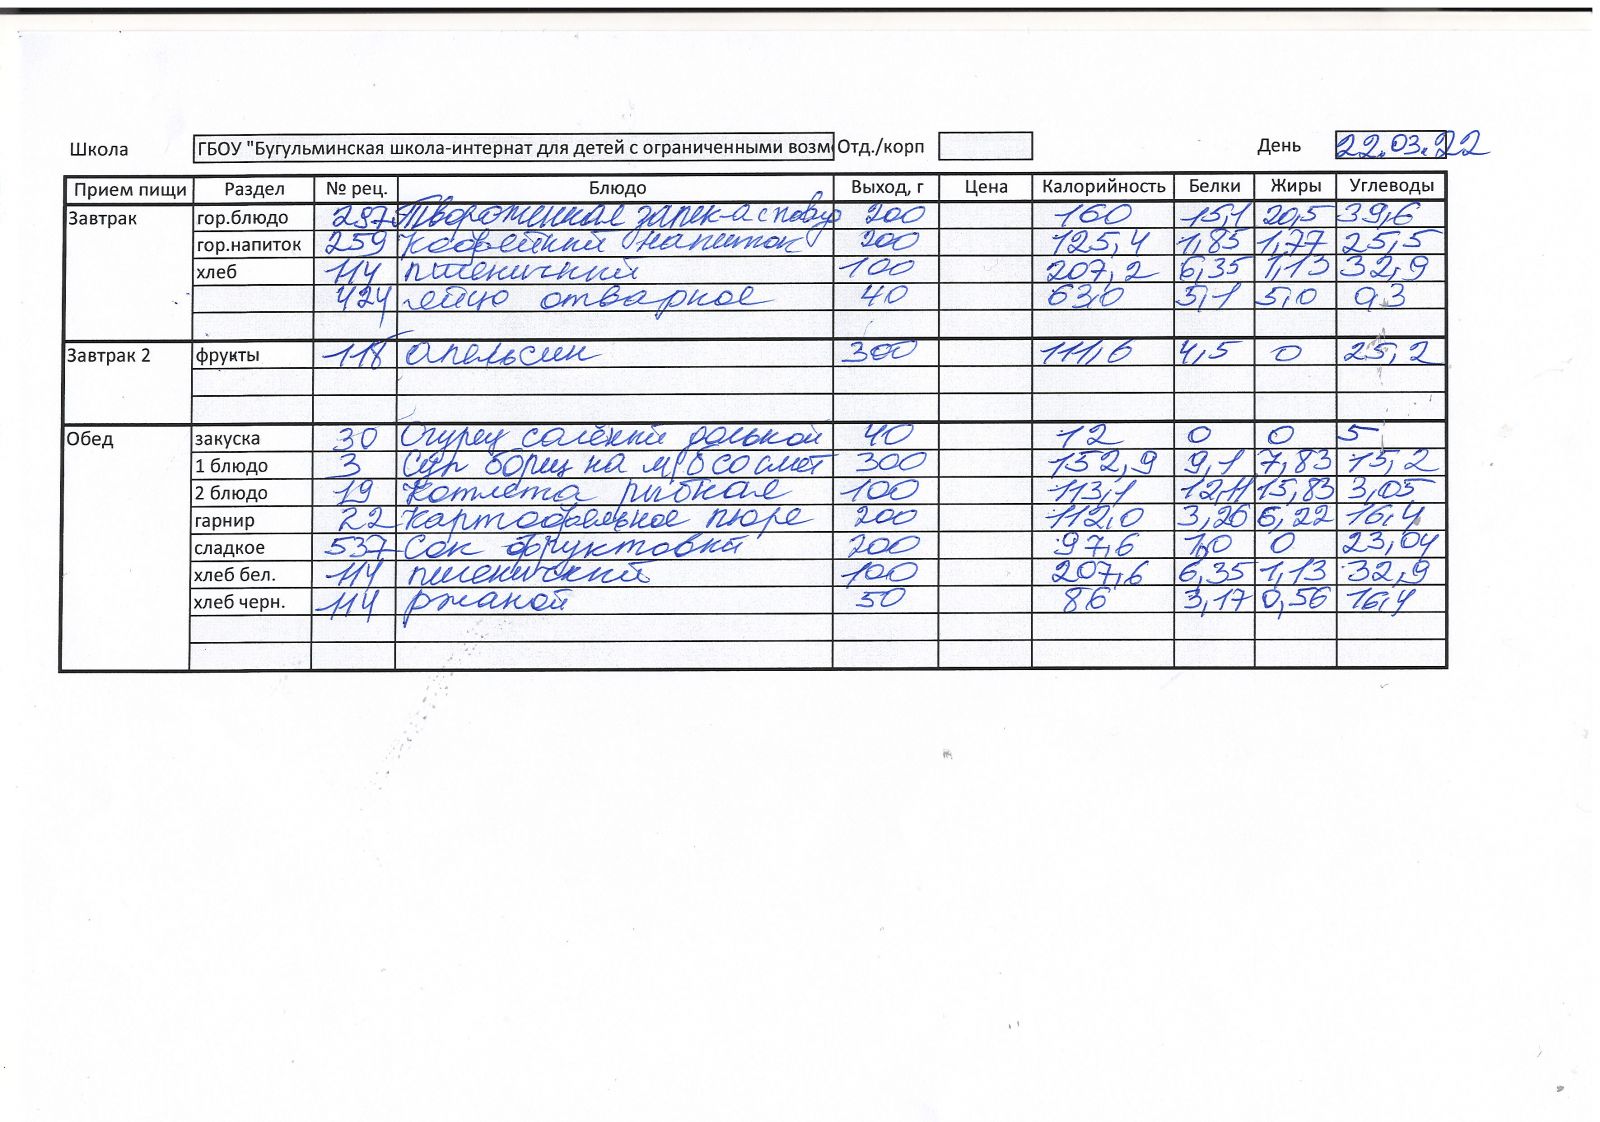 Школа ГБОУ "Бугульминская школа-интернат для детей с ограниченными возм Отд./корп День 22.03.22
Прием пищи Раздел № рец. Блюдо Выход, г Цена Калорийность Белки Жиры Углеводы
Завтрак гор.блюдо 297 Твороженная запек-а с повид 200 160 15,1 20,5 39,6
гор.напиток 259 Кофейный напиток 200 125,4 1,85 1,77 25,5
хлеб 114 пшеничный 100 207,2 6,35 1,13 32,9
424 яйцо отварное 40 63,0 5,1 5,0 0,3
Завтрак 2 фрукты 118 апельсин 300 111,6 4,5 0 25,2
Обед закуска 30 Огурец солёный долькой 40 12 0 0 5
1 блюдо 3 Суп борщ на м/б со смет 300 152,9 9,1 7,83 15,2
2 блюдо 19 Котлета рыбная 100 113,1 12,11 15,83 3,05
гарнир 22 Картофельное пюре 200 112,0 3,26 6,22 16,4
сладкое 537 Сок фруктовый 200 97,6 1,0 0 23,04
хлеб бел. 114 пшеничный 100 207,6 6,35 1,13 32,9
хлеб черн. 114 ржаной 50 86 3,17 0,56 16,4